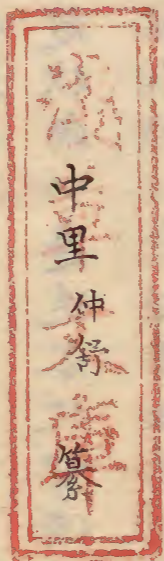 中里仲舒纂